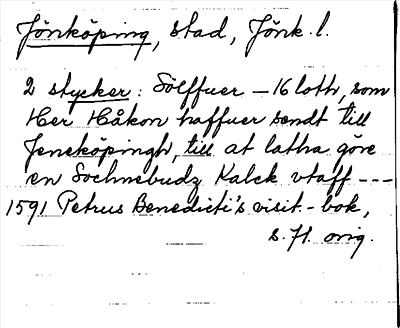 Jönköping, stad, Jönk. l.
2 stycker: Sölffuer – 16 loth, som
Her Håkon haffuer sendt till
Jeneköpingh, till at latha göre
en Sochnebudz Kalck vtaff ---
1591 Petrus Benedicti's visit.-bok,
s. 71. orig.